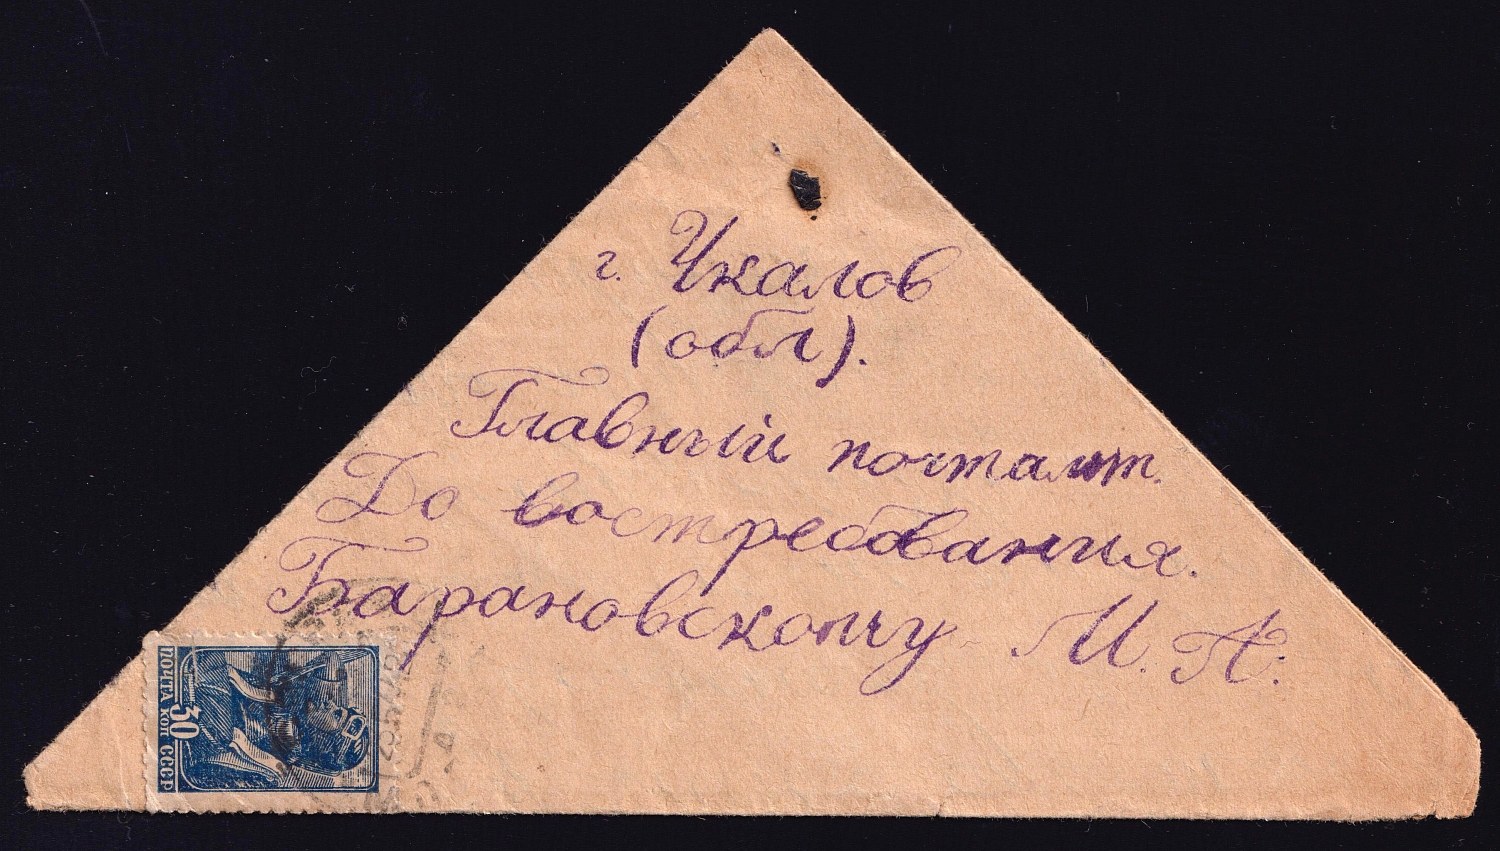 г. Чкалов
(обл).
Главный почтамт.
До востребования.
Барановскому И. А.
ПОЧТА 30 КОП СССР